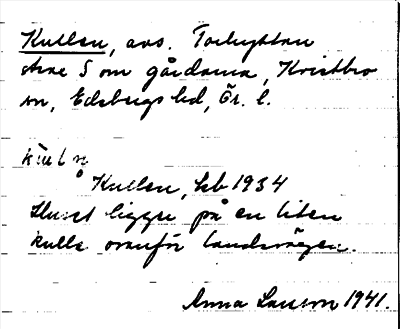 Kullen, avs. Torhyttan
strax S om gårdarna, Kvistbro
sn, Edsbergs hd, Ör. l.
kul n
Kullen, kb 1934
Huset ligger på en liten
kulle ovanför landsvägen.
Anna Larsson 1941.